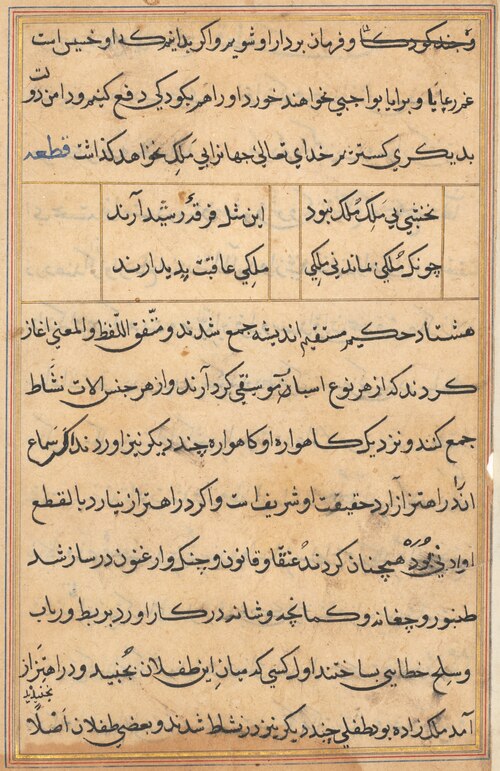 و چند کودک را و فرمان بردار او شویم و اگر بدانیم که او خسیس است
غیر رعایا و برایا بواجبی نخواهند خورد او را هم بکودکی دفع کنیم و دامن دولت
بدیگری گستریم خدای تعالی جهانرا بی ملک نخواهد گذاشت قطعه
بختئی بی ملک ملک نبود
این مثل فرقهٔ رشید آرند
چونکه ملکی نماند بی ملکی
ملکی عاقبت پدید ارند
هشتاد حکیم مستقیم اندیشه جمع شدند و متفق اللفظ والمعنی اغاز
کردند که از هر نوع اسباب موسیقی کرد آرند و از هر جنس الات نشاط
جمع کنند و نزدیک کاهواره او کاهواره چند دیگر نیز اوردند اگر سماع
انرا در اهتزاز آرد حقیقت او شریف است و اگر در اهتزاز نیارد بالقطع
او دنی بود همچنان کردند عنقا و قانون و چنک و ارغنون در ساز شد
طنبور و چغانه و کمانچه و شانه در کار اورد بربط و رباب
و سلح خطایی بساختند اول کسی که میان این طفلان بجنبید و در اهتزاز
آمد ملک زاده بود طفلی چند دیگر نیز در نشاط شدند و بعضی طفلان اصلا
بجنبیدند